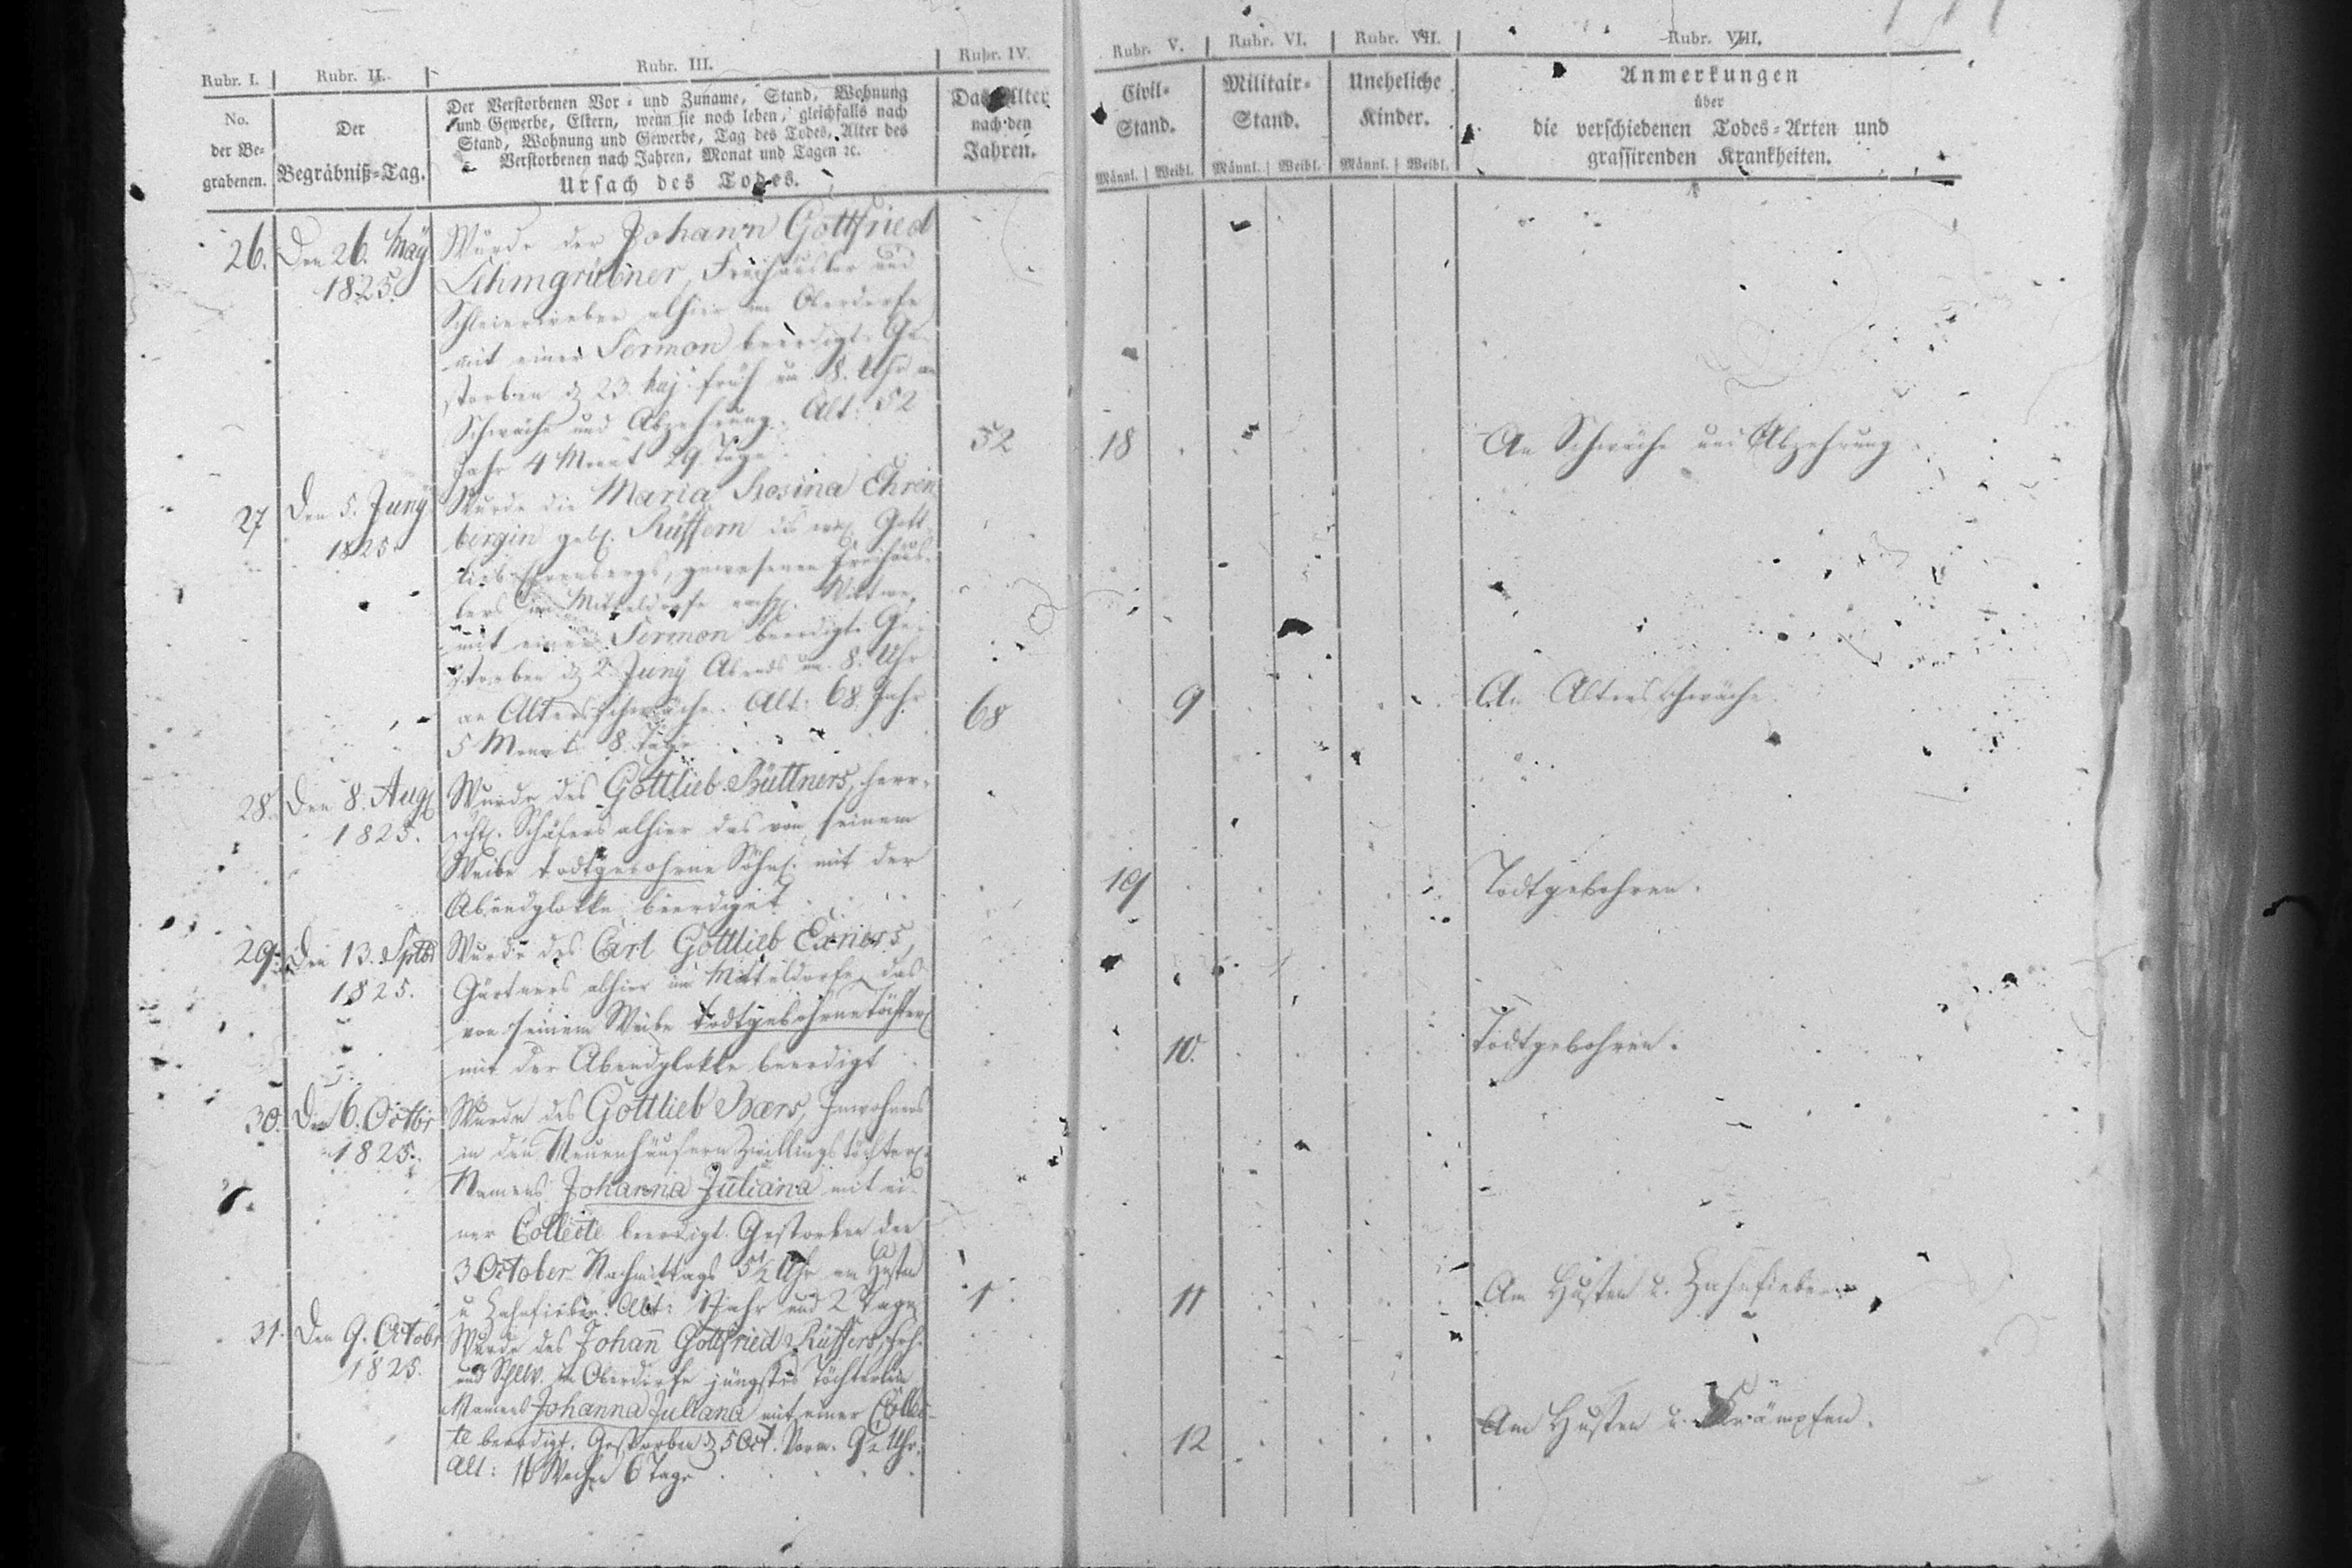 Rubr. I. Rubr. II. Rubr. III. Rubr. IV. Rubr. V. Rubr. VI. Rubr. VII. Rubr. VIII.
No.
der Be-
grabenen.
Der
Begräbniß-Tag.
Der Verstorbenen Vor- und Zuname, Stand, Wohnung
und Gewerbe, Eltern, wenn sie noch leben, gleichfalls nach
Stand, Wohnung und Gewerbe, Tag des Todes, Alter des
Verstorbenen nach Jahren, Monat und Tagen ꝛc.
Ursach des Todes.
Das Alter
nach den
Jahren.
Civil-
Stand.
Männl. Weibl.
Militair-
Stand.
Männl. Weibl.
Uneheliche
Kinder.
Männl. Weibl.
Anmerkungen
über
die verschiedenen Todes-Arten und
grassirenden Krankheiten.
26. Den 26. May
1825.
Wurde der Johann Gottfried
Lehmgrübner, Freihäusler und
Schleierweber alhier im Oberdorfe
mit einer Sermon beerdigt. Ge-
storben d. 23. Maj. früh um 8. Uhr an
Schwäche und Abzehrung. Alt: 52
Jahr 4 Monat 29. Tage.
52 18 An Schwäche und Abzehrung
27 Den 5. Juny
1825.
Wurde die Maria Rosina Ehren
bergin geb. Rüffern des Gott-
lieb Ehrenbergs, gewesenen Freihäus-
lers im Mitteldorfe Wittwe,
mit einer Sermon beerdigt. Ge-
storben d. 2. Juny Abends um 8. Uhr
an Altersschwäche. Alt: 68 Jahr
5 Monat 8. Tage
68 9 An Altersschwäche
28. Den 8. Aug.
1825.
Wurde des Gottlieb Büttners, herr-
schl. Schäfers alhier das von seinem
Weibe todtgebohrne Söhnl. mit der
Abendglokke beerdiget
19 Todtgebohren.
29. Den 13. Sptb
1825.
Wurde des Carl Gottlieb Exners,
Gärtners alhier im Mitteldorfe das
von seinem Weibe todtgebohrne Töchterl
mit der Abendglokke beerdigt
10. Todtgebohren.
30. Den 6. Octbr
1825.
Wurde des Gottlieb Baers, Inwohners
in den Neuenhäusern Zwillingstöchterl.
Namens Johanna Juliana mit ei-
ner Collecte beerdigt. Gestorben den
3 October Nachmittags 5½ Uhr am Husten
u Zahnfieber. Alt: 1 Jahr und 2 Tage
1 11 Am Husten u. Zahnfieber.
31. Den 9. Octobr
1825.
Wurde des Johan̄ Gottfried Rüffers,
und im Oberdorfe jüngstes Töchterlein
Namens Johanna Juliana mit einer Collec-
te beerdigt. Gestorben d. 5 Oct. Vorm. 9½ Uhr.
Alt: 16 Wochen 6 Tage
12 Am Husten u. Krämpfen.